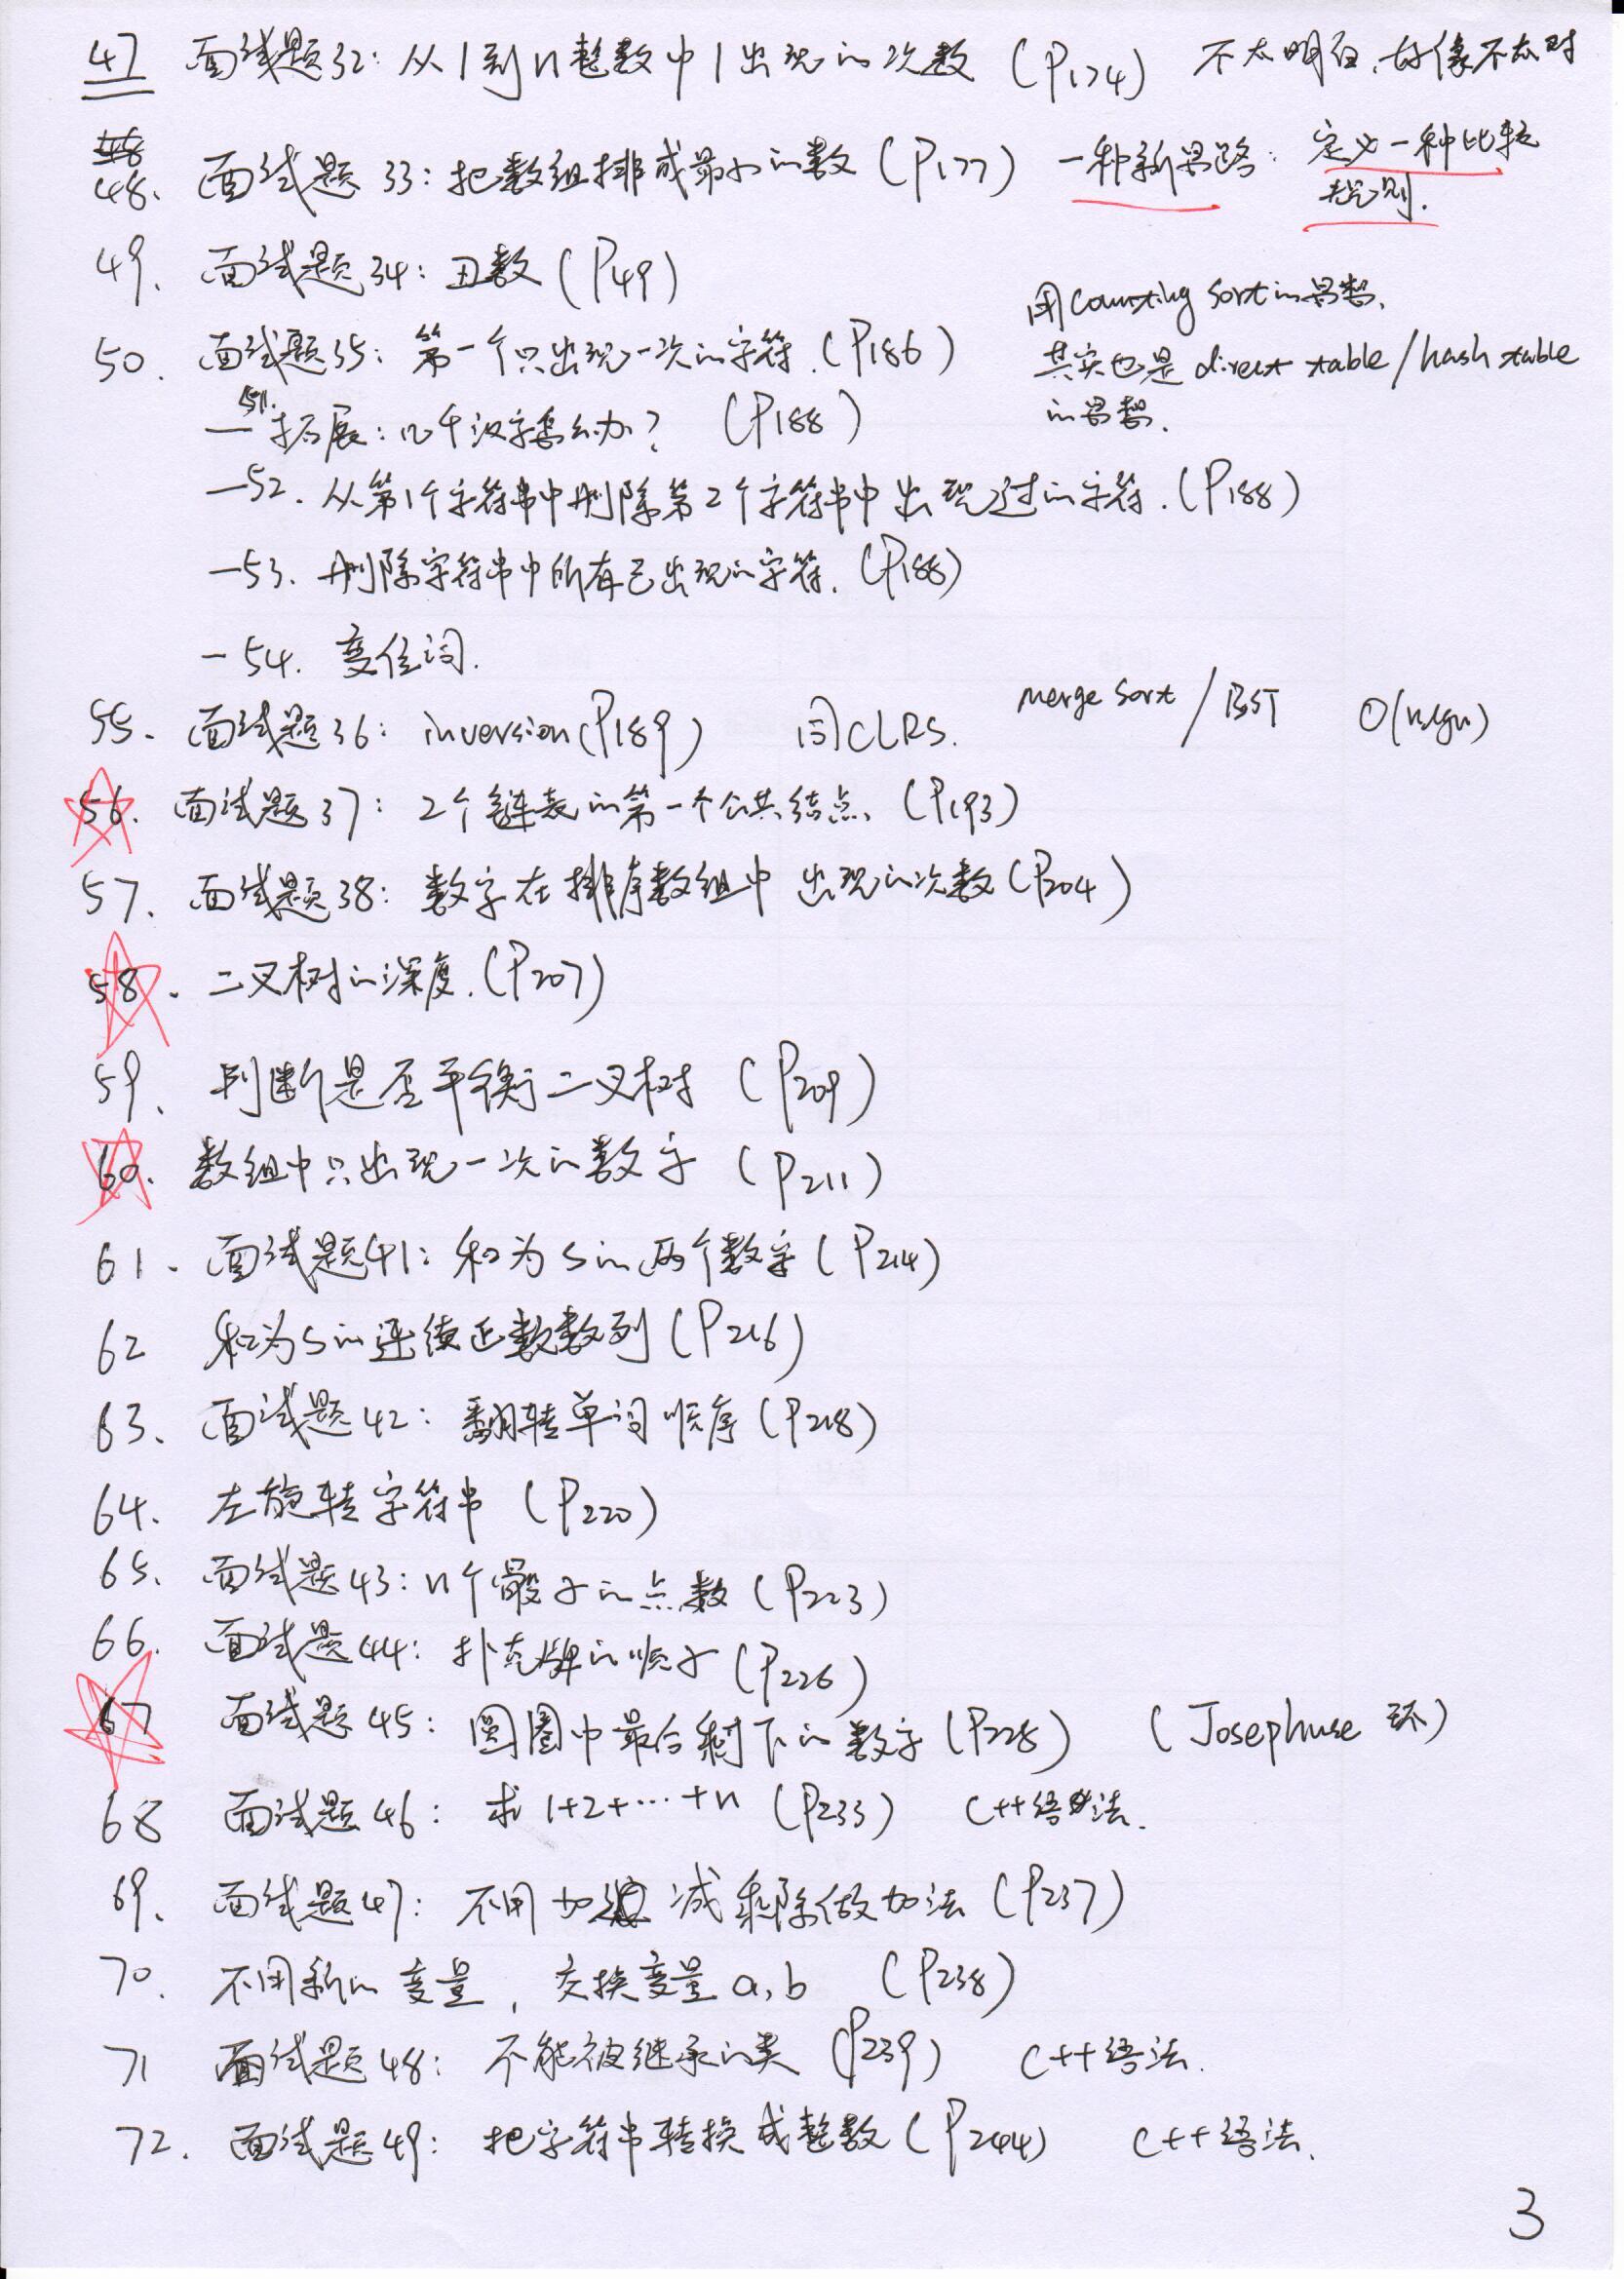 47 面试题32：从1到n整数中1出现的次数（P174） 不太明白，好像不太对
48. 面试题33：把数组排成最小的数（P177） 一种新思路：定义一种比较
规则.
49. 面试题34：丑数（P49）
用counting sort的思想.
50. 面试题35：第一个只出现一次的字符.（P186）
其实也是direct table/hash table
的思想.
—51.拓展：几千汉字怎么办？ （P188）
—52. 从第1个字符串中删除第2个字符串中出现过的字符.（P188）
—53. 删除字符串中所有已出现的字符.（P188）
—54. 变位词.
55. 面试题36：inversion(P189) 同CLRS. merge sort / BST O(nlgn)
56. 面试题37：2个链表的第一个公共结点、（P193）
57. 面试题38：数字在排序数组中出现的次数（P204）
58. 二叉树的深度.（P207）
59. 判断是否平衡二叉树 （P209）
60. 数组中只出现一次的数字 （P211）
61. 面试题41：和为S的两个数字（P214）
62 和为S的连续正数数列（P216）
63. 面试题42：翻转单词顺序（P218）
64. 左旋转字符串 （P220）
65. 面试题43：n个骰子的点数（P223）
66. 面试题44：扑克牌的顺子（P226）
67 面试题45：圆圈中最后剩下的数字（P228） （Josephuse 环）
68 面试题46：求1+2+…+n （P233） C++语法.
69. 面试题47：不用加减乘除做加法（P237）
70. 不用新的变量，交换变量a,b （P238）
71 面试题48：不能被继承的类（P239） C++语法.
72. 面试题49：把字符串转换成整数（P244） C++语法.
3